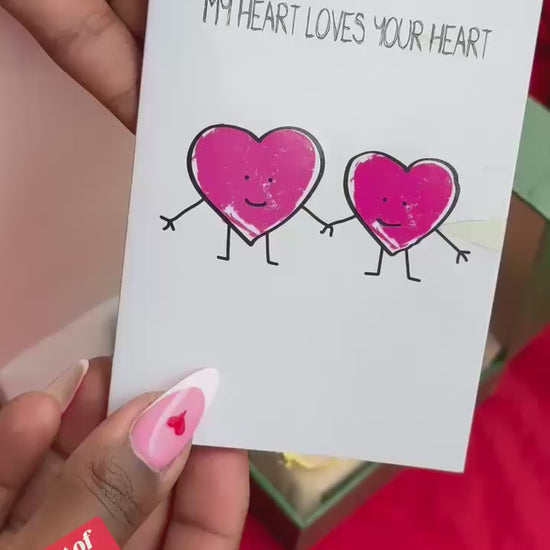 MY HEART LOVES YOUR HEART
of